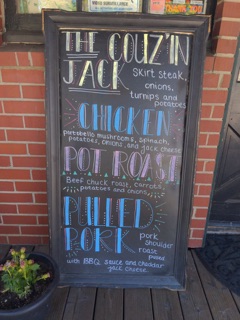 THE COUZ'IN
JACK
Skirt steak,
onions,
turnips and
potatoes
CHICKEN
portobello mushrooms, spinach,
potatoes, onions, and jack cheese
POT ROAST
Beef chuck roast, carrots,
potatoes and onions
PULLED
PORK
pork
shoulder
roast
pulled
with BBQ sauce and cheddar
jack cheese